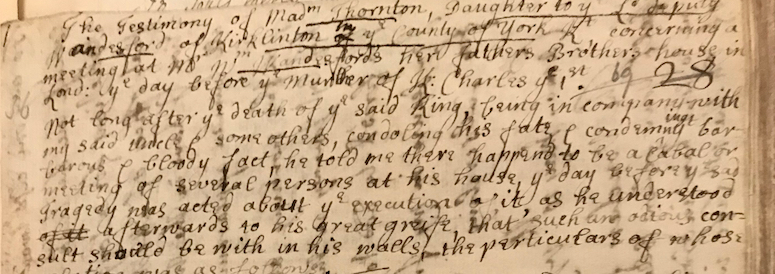 The Testimony of Madm Thornton, Daughter to ye Ld deputy
Wandesford of Kirklinton in ye County of York Kt concerning a
meeting at Mr Wm Wandesfords her fathers Brothers house in
Lond: ye day before ye Murder of K: Charles ye 1st. 69 28
Not long after ye death of ye said King, being in company with
my said uncle & some others, condoling his fate & condemning yt bar-
barous & bloody fact, he told me there happend to be a Cabal or
meeting of several persons at his house, ye day before ye sad
tragedy was acted about ye execution of it as he understood
afterwards to his great greife, that such an odious con=
sult should be with in his walls, the particulars of whose
was as